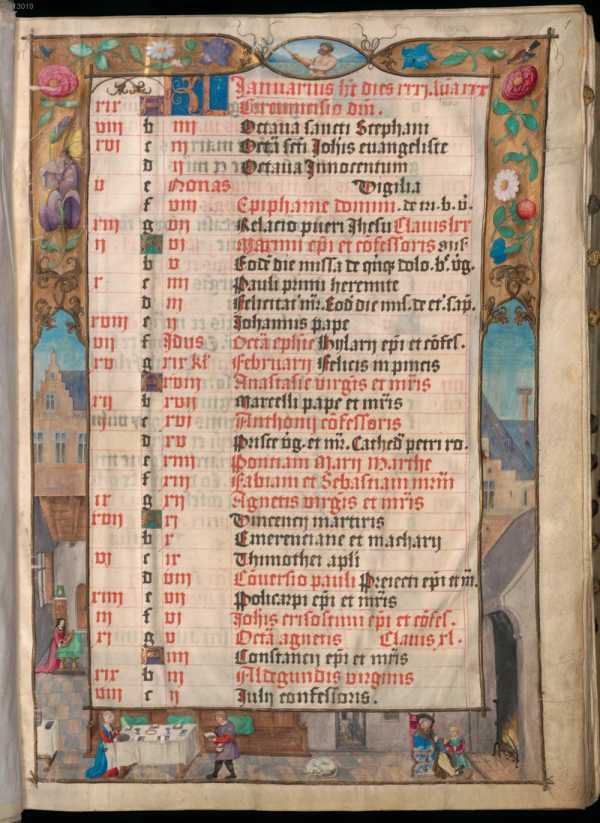 13010
KL Januarius ht dies xxxi. lūa xxx
xix Circumcisio dn̄i.
viii b iiii Octaua sancti Stephani
xvi c iii Octā sc̄ti Joh̄is euangeliste
d ii Octaua Innocentum
v e Nonas Vigilia
f viii Epiphanie domini. de iii. b. v̄.
xiii g vii Relacio pueri Jhesu Clauis lxx
ii vi ep̄i et cōfessoris
b v Eodē die missa de dolo. b. v̄g.
x c iiii Pauli primi heremite
d iii
xviii e ii Johannis pape
vii f Idus Octā eph̄ie Hylarii ep̄i et cōfes.
xv g xix kl̄ Februarii Felicis in pincis
xviii Anastasie virgīs et mr̄is
xii b xvii Marcelli pape et mr̄is
c xvi Anthonii cōfessoris
d xv Prisce v̄g. et m̄. Cathedr̄ petri ro.
e xiiii Ponciani Marii Marthe
f xiii Fabiani et Sebastiani mr̄m
ix g xii Agnetis virgīs et mr̄is
xvii xi Vincencii martiris
b x Emerenciane et macharii
vi c ix Thimothei apl̄i
d viii Cōuersio pauli Preiecti ep̄i et m̄.
xiiii e vii Policarpi ep̄i et mr̄is
iii f vi Joh̄is crisostimi ep̄i et cōfes.
xi g v Octā agnetis Clauis xl.
iiii Constancii ep̄i et mr̄is
xix b iii Aldegundis virginis
viii c ii Julii confessoris.